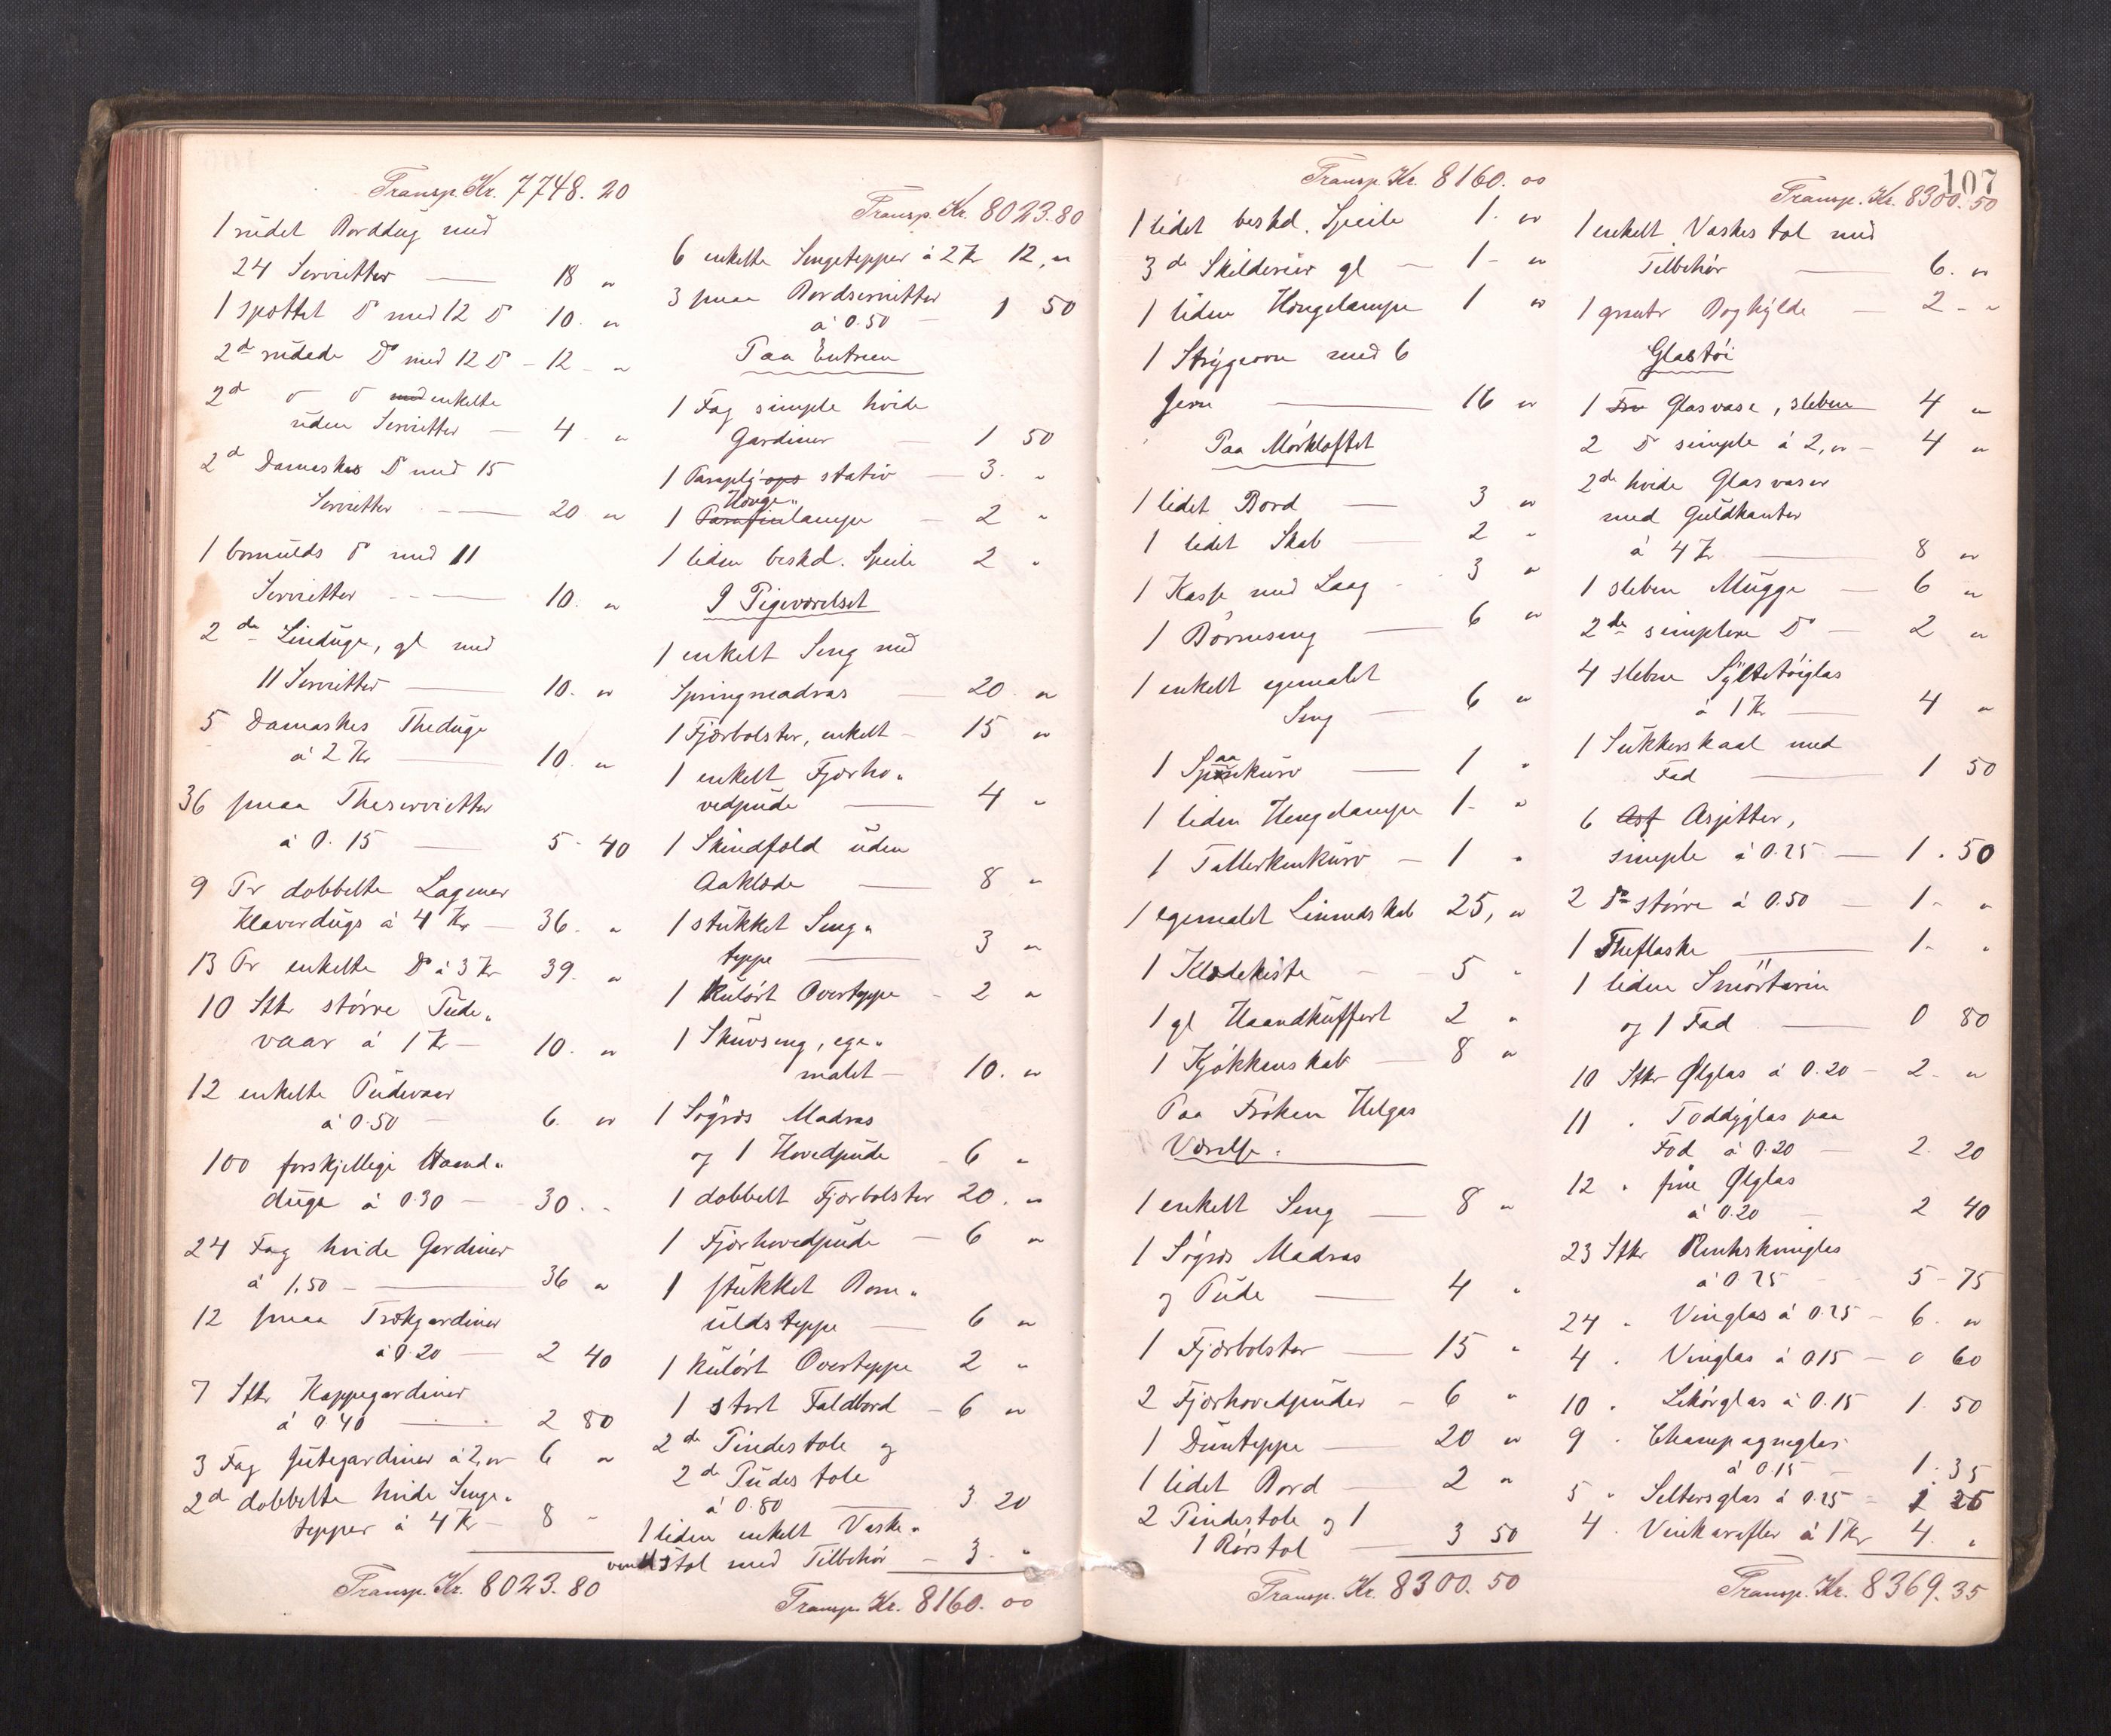 Transp. Kr. 7748. 20
1 rudet Borddug med
24 Servietter — 18 "
1 spottet Do med 12 Do 10. "
2de rudede Do med 12 Do - 12 - "
2de Do Do med enkelte
uden Servietter — 4. "
2de Damaskes Do med 15
Servietter — 20 "
1 bomulds Do med 11
Servietter — 10. "
2de Linduge, gl med
11 Servietter — 10. "
5 Damaskes Theduge
à 2 Kr — 10. "
36 smaa Theservietter
à 0.15 — 5 - 40
9 Pr dobbelte Lagener
Klaverdugs à 4 Kr — 36. "
13 Pr enkelte Do à 3 Kr 39. "
10 Stkr større Pude"
vaar à 1 Kr — 10. "
12 enkelte Pudevaar
à 0.50 — 6. "
100 forskjellige Haand"
duge à 0.30 — 30. -
24 Fag hvide Gardiner
à 1,50 — 36 "
12 smaa Trækgardiner
à 0.20 — 2 40
7 Stkr Kappegardiner
à 0.40 — 2 80
3 Fag Jutegardiner à 2," 6 "
2de dobbelte hvide Senge"
tepper à 4 Kr — 8 -
Transp. Kr. 8023. 80
Transp. Kr. 8023. 80
6 enkelte Sengetepper à 2 Kr 12, "
3 smaa Bordservietter
à 0.50 — 1 50
Paa Entreen
1 Fag simple hvide
Gardiner — 1 50
1 Paraply ops stativ — 3. "
Hænge"
1 Parafinlampe — 2 "
1 liden beskd. Speile 2 "
I Pigeværelset
1 enkelt Seng med
Springmadras — 20 "
1 Fjærbolster, enkelt — 15 "
1 enkelt Fjærho"
vedpude — 4 "
1 Skindfeld uden
Aaklæde — 8 "
1 stukket Seng"
teppe — 3 "
1 kulørt Overteppe — 2 "
1 Skuvseng, ege"
malet — 10. "
1 Søgræs Madras
og 1 Hovedpude — 6 "
1 dobbelt Fjærbolster 20. "
1 Fjærhovedpude — 6 "
1 stukket Bom"
uldsteppe — 6 "
1 kulørt Overteppe 2 "
1 stort Faldbord — 6 "
2de Pindestole og
2de Pudestole
à 0.80 — 3 20
1 liden enkelt Vaske"
stol med Tilbehør — 3. "
Transp. Kr. 8160. 00
Transp. Kr. 8160. 00
1 lidet beskd. Speile 1. "
3de Skilderier gl — 1 - "
1 liden Hængelampe 1 "
1 Strygeovn med 6
Jern — 16 "
Paa Mørkloftet
1 lidet Bord — 3 "
1 lidet Skab — 2 "
1 Kasse med Laag - 3 "
1 Børneseng — 6 "
1 enkelt egemalet
Seng — 6 "
aa
1 Spenkurv — 1 "
1 liden Hengelampe 1 - "
1 Tallerkenkurv — 1 "
1 egemalet Linnedskab 25, "
1 Klædekiste — 5 "
1 gl Haandkuffert 2 "
1 Kjøkkenskab — 8 "
Paa Frøken Helgas
Værelse.
1 enkelt Seng — 8 "
1 Søgræs Madras
og Pude — 4 "
1 Fjærbolster — 15 "
2 Fjærhovedpuder — 6 "
1 Dunteppe — 20 "
1 lidet Bord — 2 "
2 Pindestole og 1
1 Rørstol — 3 50
Transp. Kr. 8300. 50
107
Transp. Kr. 8300. 50
1 enkelt Vaskestol med
Tilbehør — 6. "
1 grønt Boghylde — 2 - "
Glastøi
1 Glasvase, sleben 4 "
2 Do simple à 2," — 4 "
2de hvide Glasvaser
med Guldkanter
à 4 Kr — 8 "
1 sleben Mugge — 6 "
2de simplere Do — 2 "
4 slebne Syltetøiglas
à 1 Kr — 4 "
1 Sukkerskaal med
Fad — 1 50
6 Asf Asjetter,
simple à 0.25 — 1. 50
2 Do større à 0.50 — 1 - "
1 Theflaske — 1 - "
1 liden Smørterrin
og 1 Fad — 0 80
10 Stkr Ølglas à 0.20 — 2 - "
11 " Toddyglas paa
Fod à 0.20 — 2. 20
12 " fine Ølglas
à 0.20 — 2 40
23 Stkr Rinhskvinglas
à 0.25 — 5 - 75
24 " Vinglas à 0.25 — 6. "
4 " Vinglas à 0.15 — 0 60
10 " Likørglas à 0.15 1. 50
9 " Champagneglas
à 0.15 — 1. 35
5 " Seltersglas à 0.25 — 1 25
4 " Vinkarafler à 1 Kr 4. "
Transp. Kr. 8369. 35